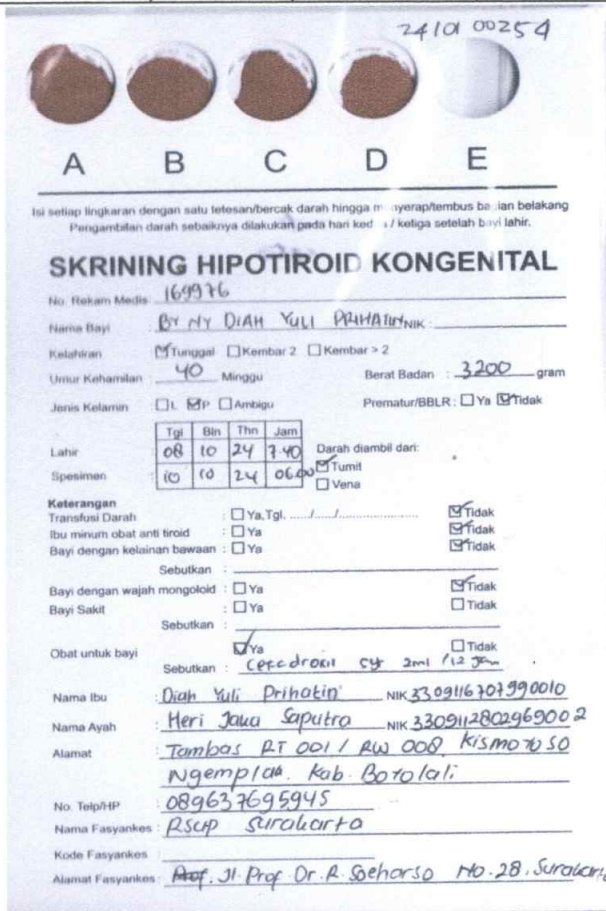 24101 00254
A B C D E
Isi setiap lingkaran dengan satu tetesan/bercak darah hingga menyerap/tembus bagian belakang
Pengambilan darah sebaiknya dilakukan pada hari kedua / ketiga setelah bayi lahir.
SKRINING HIPOTIROID KONGENITAL
No. Rekam Medis : 169976
Nama Bayi : BY NY DIAH YULI PRIHATIN NIK :
Kelahiran : ☑Tunggal ☐Kembar 2 ☐Kembar > 2
Umur Kehamilan : 40 Minggu Berat Badan : 3200 gram
Jenis Kelamin ☐L ☑P ☐Ambigu Prematur/BBLR : ☐ Ya ☑Tidak
Tgl Bln Thn Jam
Lahir 08 10 24 7.40 Darah diambil dari:
Spesimen 10 10 24 06.00 ☑Tumit
☐Vena
Keterangan
Transfusi Darah : ☐Ya,Tgl. ...../....../..................... ☑Tidak
Ibu minum obat anti tiroid : ☐Ya ☑Tidak
Bayi dengan kelainan bawaan : ☐Ya ☑Tidak
Sebutkan :
Bayi dengan wajah mongoloid : ☐Ya ☑Tidak
Bayi Sakit : ☐Ya ☐Tidak
Sebutkan :
Obat untuk bayi ☑Ya ☐Tidak
Sebutkan : Cefadroxil sy 2ml /12 Jam
Nama Ibu : Diah Yuli Prihatin NIK 3309116707990010
Nama Ayah : Heri Jaka Saputra NIK 3309112802969002
Alamat : Tambas RT 001 / RW 008, Kismoyoso
Ngemplak. Kab. Boyolali
No. Telp/HP : 089637695945
Nama Fasyankes : RSUP Surakarta
Kode Fasyankes :
Alamat Fasyankes : Jl. Prof. Dr. R. Soeharso No. 28. Surakarta